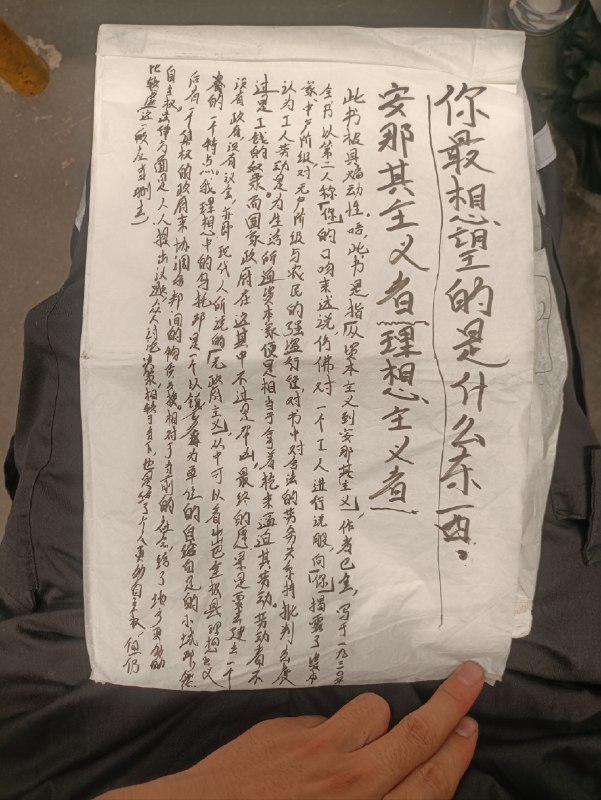 你最想望的是什么东西？
安那其主义者理想主义者
此书极具煽动性。唔，此书是指《从资本主义到安那其主义》，作者巴金，写于一九三〇年
全书以第二人称「你」的口吻来述说仿佛对一个工人进行说服，向「你」揭露了资本
家中产阶级对无产阶级与农民的强盗行径，对书中对合法的劳务关系持批判态度
认为工人劳动是为生活所迫资本家便是相当于拿着枪来逼迫其劳动。劳动者不
过是工钱的奴隶。而国家政府在这其中不过是帮凶，最终的结果是要去建立一个
没有政府，没有议会，亦即现代人所说的「无政府主义」从中可以看出巴金极具理想主义
者的一个特点。我理想中的乌托邦是一个以镇为单位的自给自足的小城邦然
后有一个集权的政府来协调各邦间的物质交换。相对于当前的社会，给了地方更多的
自主权，法律方面是人人提出议题，众人讨论决策，相较于当下，也是给了个人更多的自主权，但仍
比较遥远（一般左当删去）